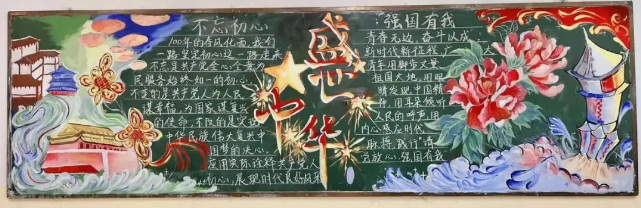 不忘初心
100年的春风化雨，我们
一路坚定初心这一路走来
不忘是共产党全心全意为人
民服务始终如一的初心，
不变的是共产党人为人民
谋幸福，为国家谋复兴
的使命，不同的是义
中华民族伟大复兴中
国梦的决心，
应用实际诠释共产党人
初心，展现时代良好风采
盛世
中华
强国有我
青春无边，奋斗以成
新时代新征程，广
青年用脚步大量
祖国大地，用眼
睛发现中国精
神，用耳朵倾听
人民的呼声，用
内心感应时代
脉搏，践行"请
党放心，强国有我